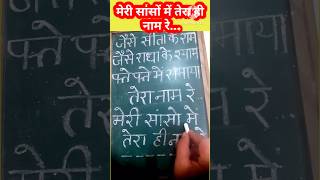 मेरी सांसों में तेरा ही
नाम रे...
जैसे सीता के राम
जैसे राधा के श्याम
पत्ते पत्ते में समाया
तेरा नाम रे
मेरी सांसो मे
तेरा ही